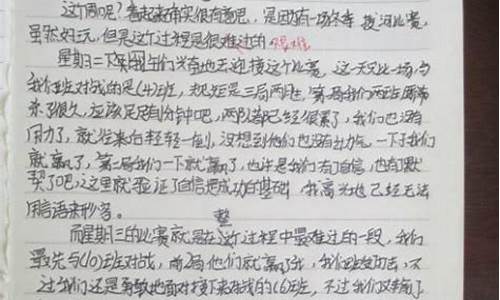 这个周呢?看起来确实很有意思,是因为有一场冬季拔河比赛,
虽然好玩,但是这个过程是很难过的 艰难
星期二下午同学们兴奋地去迎接这个比赛,这一天只比一场,与
我们班对战的是(4)班,规矩是三局两胜,第一局我们两班
来了很久,应该足足有1分钟吧,两队都已经很累了,我们也没有
用力了,就往来白轻轻一創,没想到他们也没有出力气,一下子我们
就赢了,第二局我们一下就赢了,也许是我们有了自信,也有了默
契了吧,这里就验证了自信是成功的基础,我高兴地已经无法
用言语来形容。
而星期三的比赛就是在这个过程中最难过的一段,我们 整
最先与(10)班对战,前2局他们就赢了我,我们班没力了,不
过我们还是勇敢地面对接下来对战的(6)班,不过我们又输了